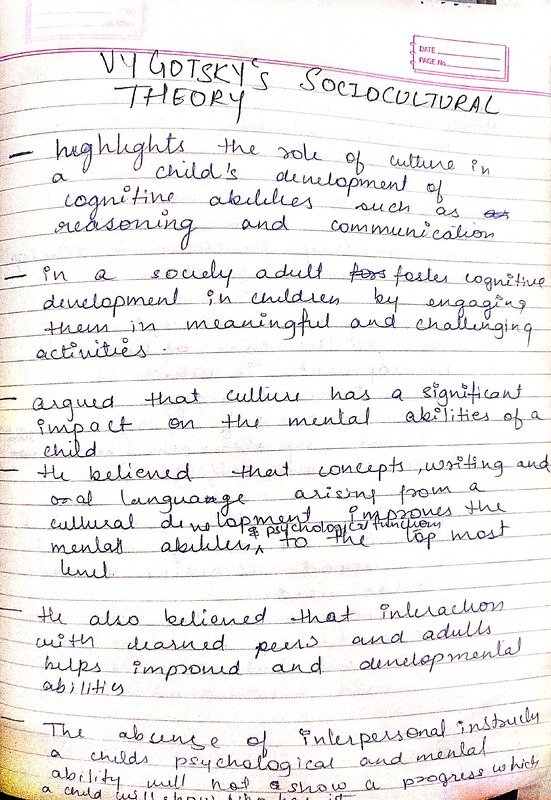 DATE
PAGE No.
VYGOTSKY's SOCIOCULTURAL
THEORY
– highlights the role of culture in
a child's development of
cognitive abilities such as
reasoning and communication
– in a society adult foster cognitive
development in children by engaging
them in meaningful and challenging
activities.
– argued that culture has a significant
impact on the mental abilities of a
child
– He believed that concepts, writing and
oral language arising from a
cultural development improves the
& psychological function
mental abilities ^ to the top most
level.
– He also believed that interaction
with learned peers and adults
helps improved and developmental
abilities
– The absence of interpersonal
a childs psychological and mental
ability will not show a progress which
a child will show